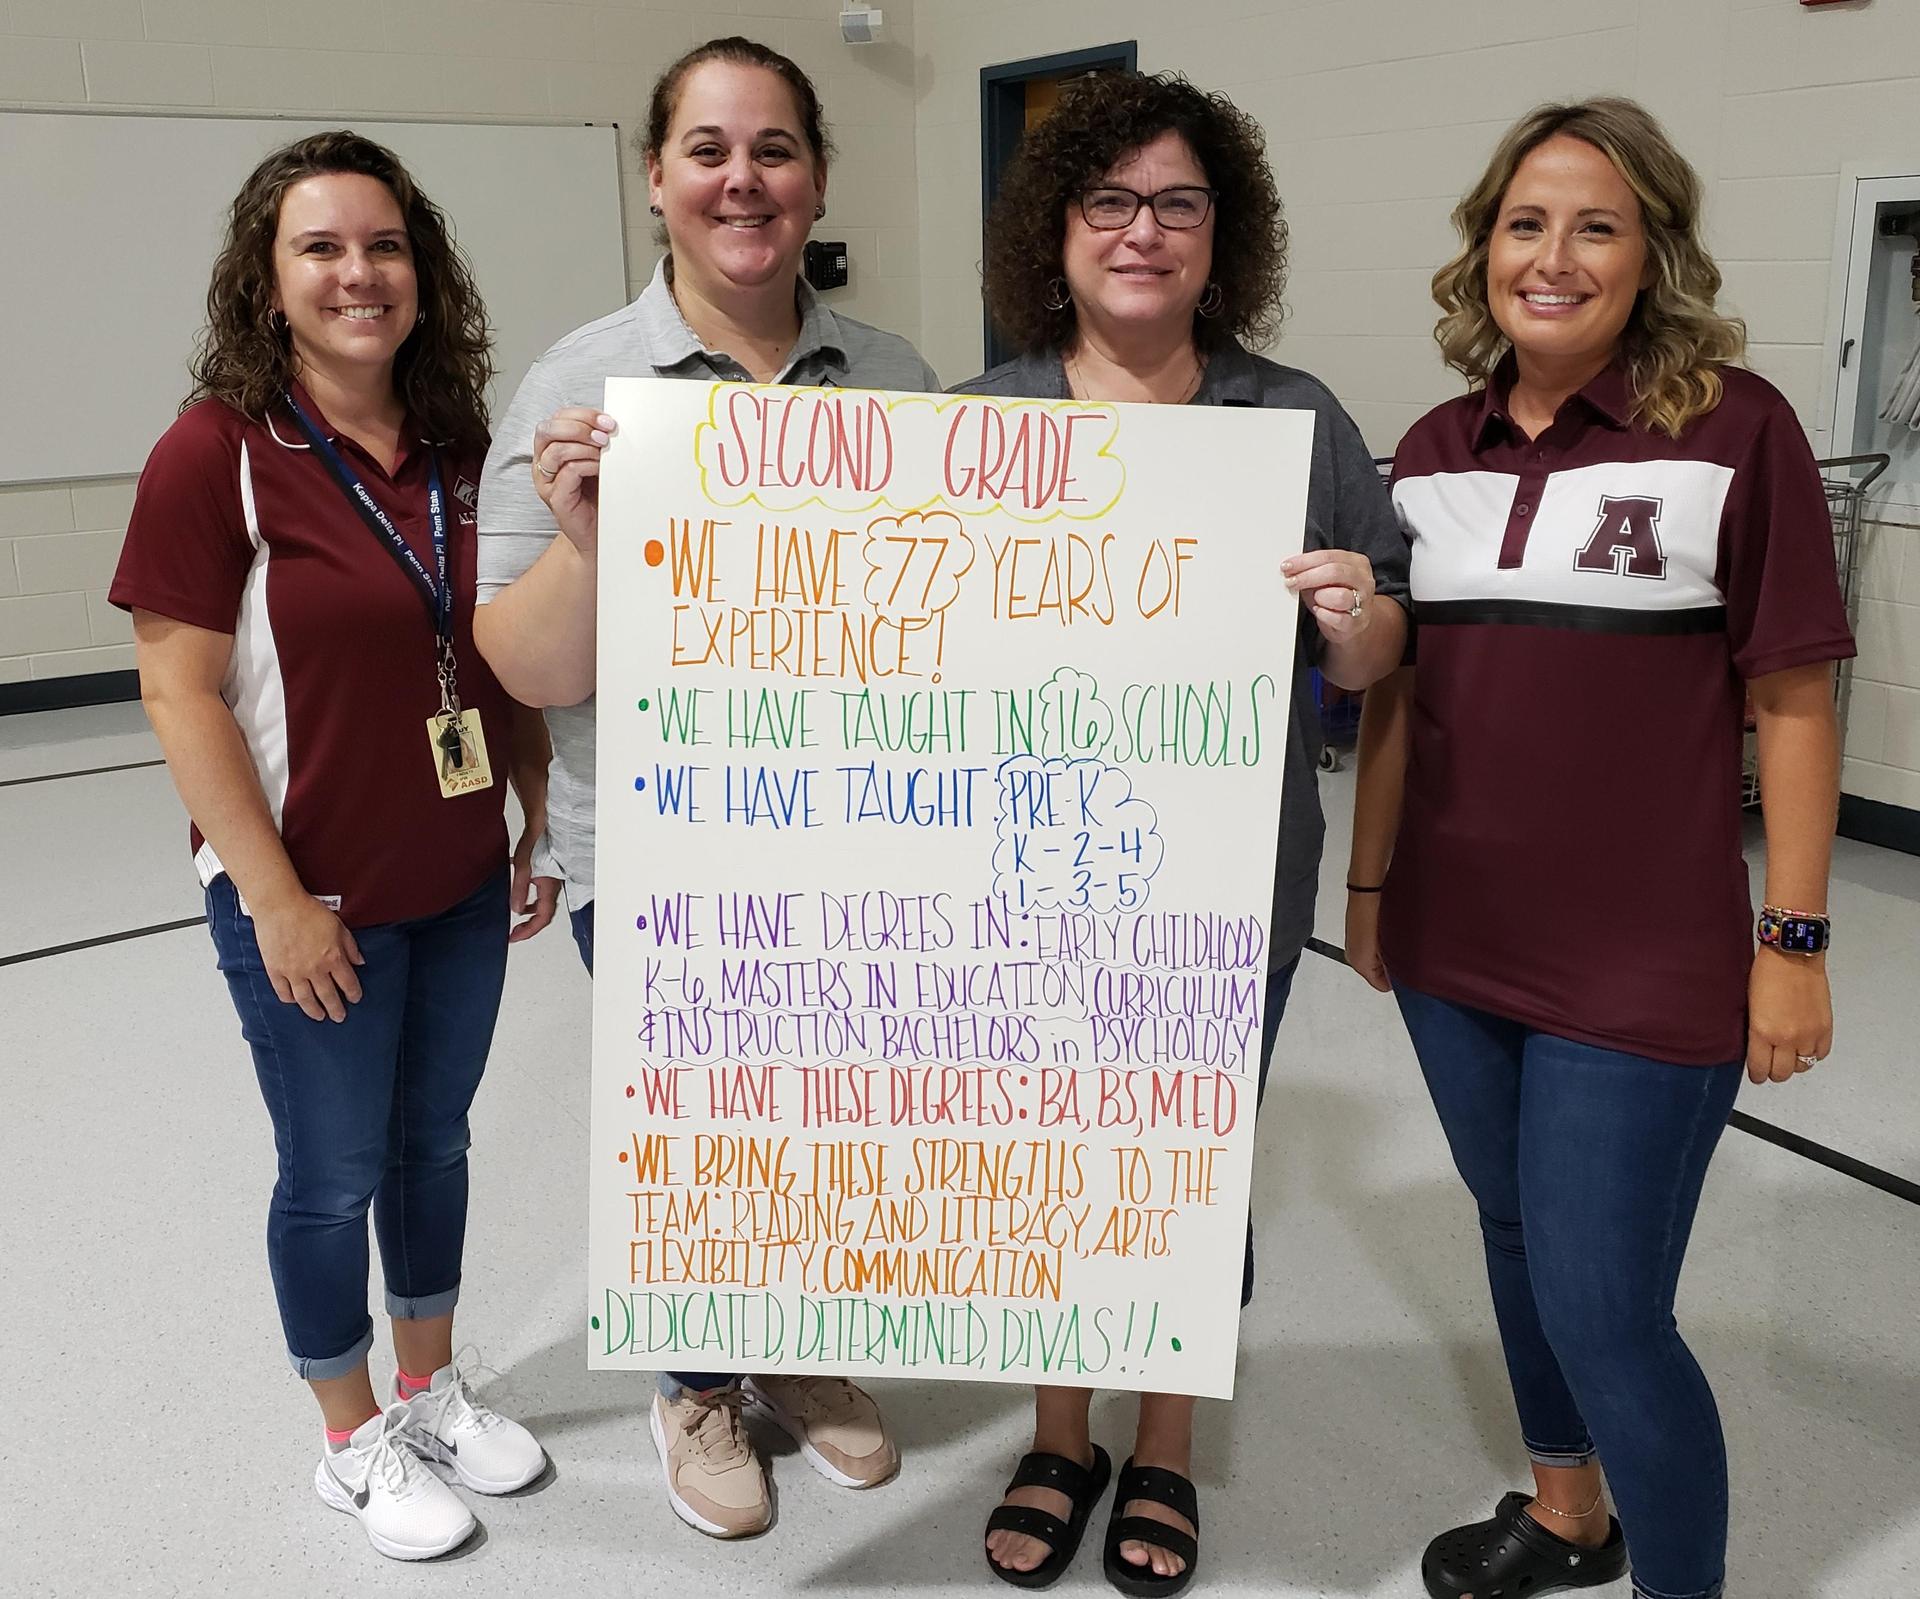 SECOND GRADE
• WE HAVE 77 YEARS OF
EXPERIENCE!
• WE HAVE TAUGHT IN 16 SCHOOLS
• WE HAVE TAUGHT: PRE-K
K-2-4
1-3-5
• WE HAVE DEGREES IN: EARLY CHILDHOOD,
K-6, MASTERS IN EDUCATION, CURRICULUM
& INSTRUCTION, BACHELORS in PSYCHOLOGY
• WE HAVE THESE DEGREES: BA, BS, M.ED
• WE BRING THESE STRENGTHS TO THE
TEAM: READING AND LITERACY, ARTS,
FLEXIBILITY, COMMUNICATION
• DEDICATED, DETERMINED, DIVAS!! •
Kappa Delta Pi Penn State
Kappa Delta Pi Penn State
AASD
A